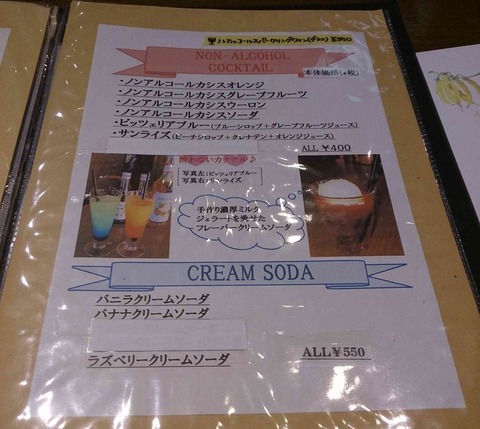 ノンアルコールスパークリングワイン(グラス) ¥350
NON-ALCOHOL
COCKTAIL
本体価格(+税)
・ノンアルコールカシスオレンジ
・ノンアルコールカシスグレープフルーツ
・ノンアルコールカシスウーロン
・ノンアルコールカシスソーダ
・ピッツェリアブルー(ブルーシロップ+グレープフルーツジュース)
・サンライズ(ピーチシロップ+グレナデン+オレンジジュース)
ALL ¥400
酔わないカクテル♪
写真左:ピッツェリアブルー
写真右:サンライズ
手作り濃厚ミルク
ジェラートを乗せた
フレーバークリームソーダ
CREAM SODA
バニラクリームソーダ
バナナクリームソーダ
ラズベリークリームソーダ
ALL¥550